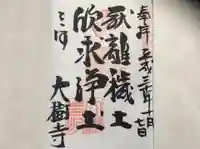 奉拝 平成三十年一月七日
厭離穢土
欣求浄土
三河 大樹寺